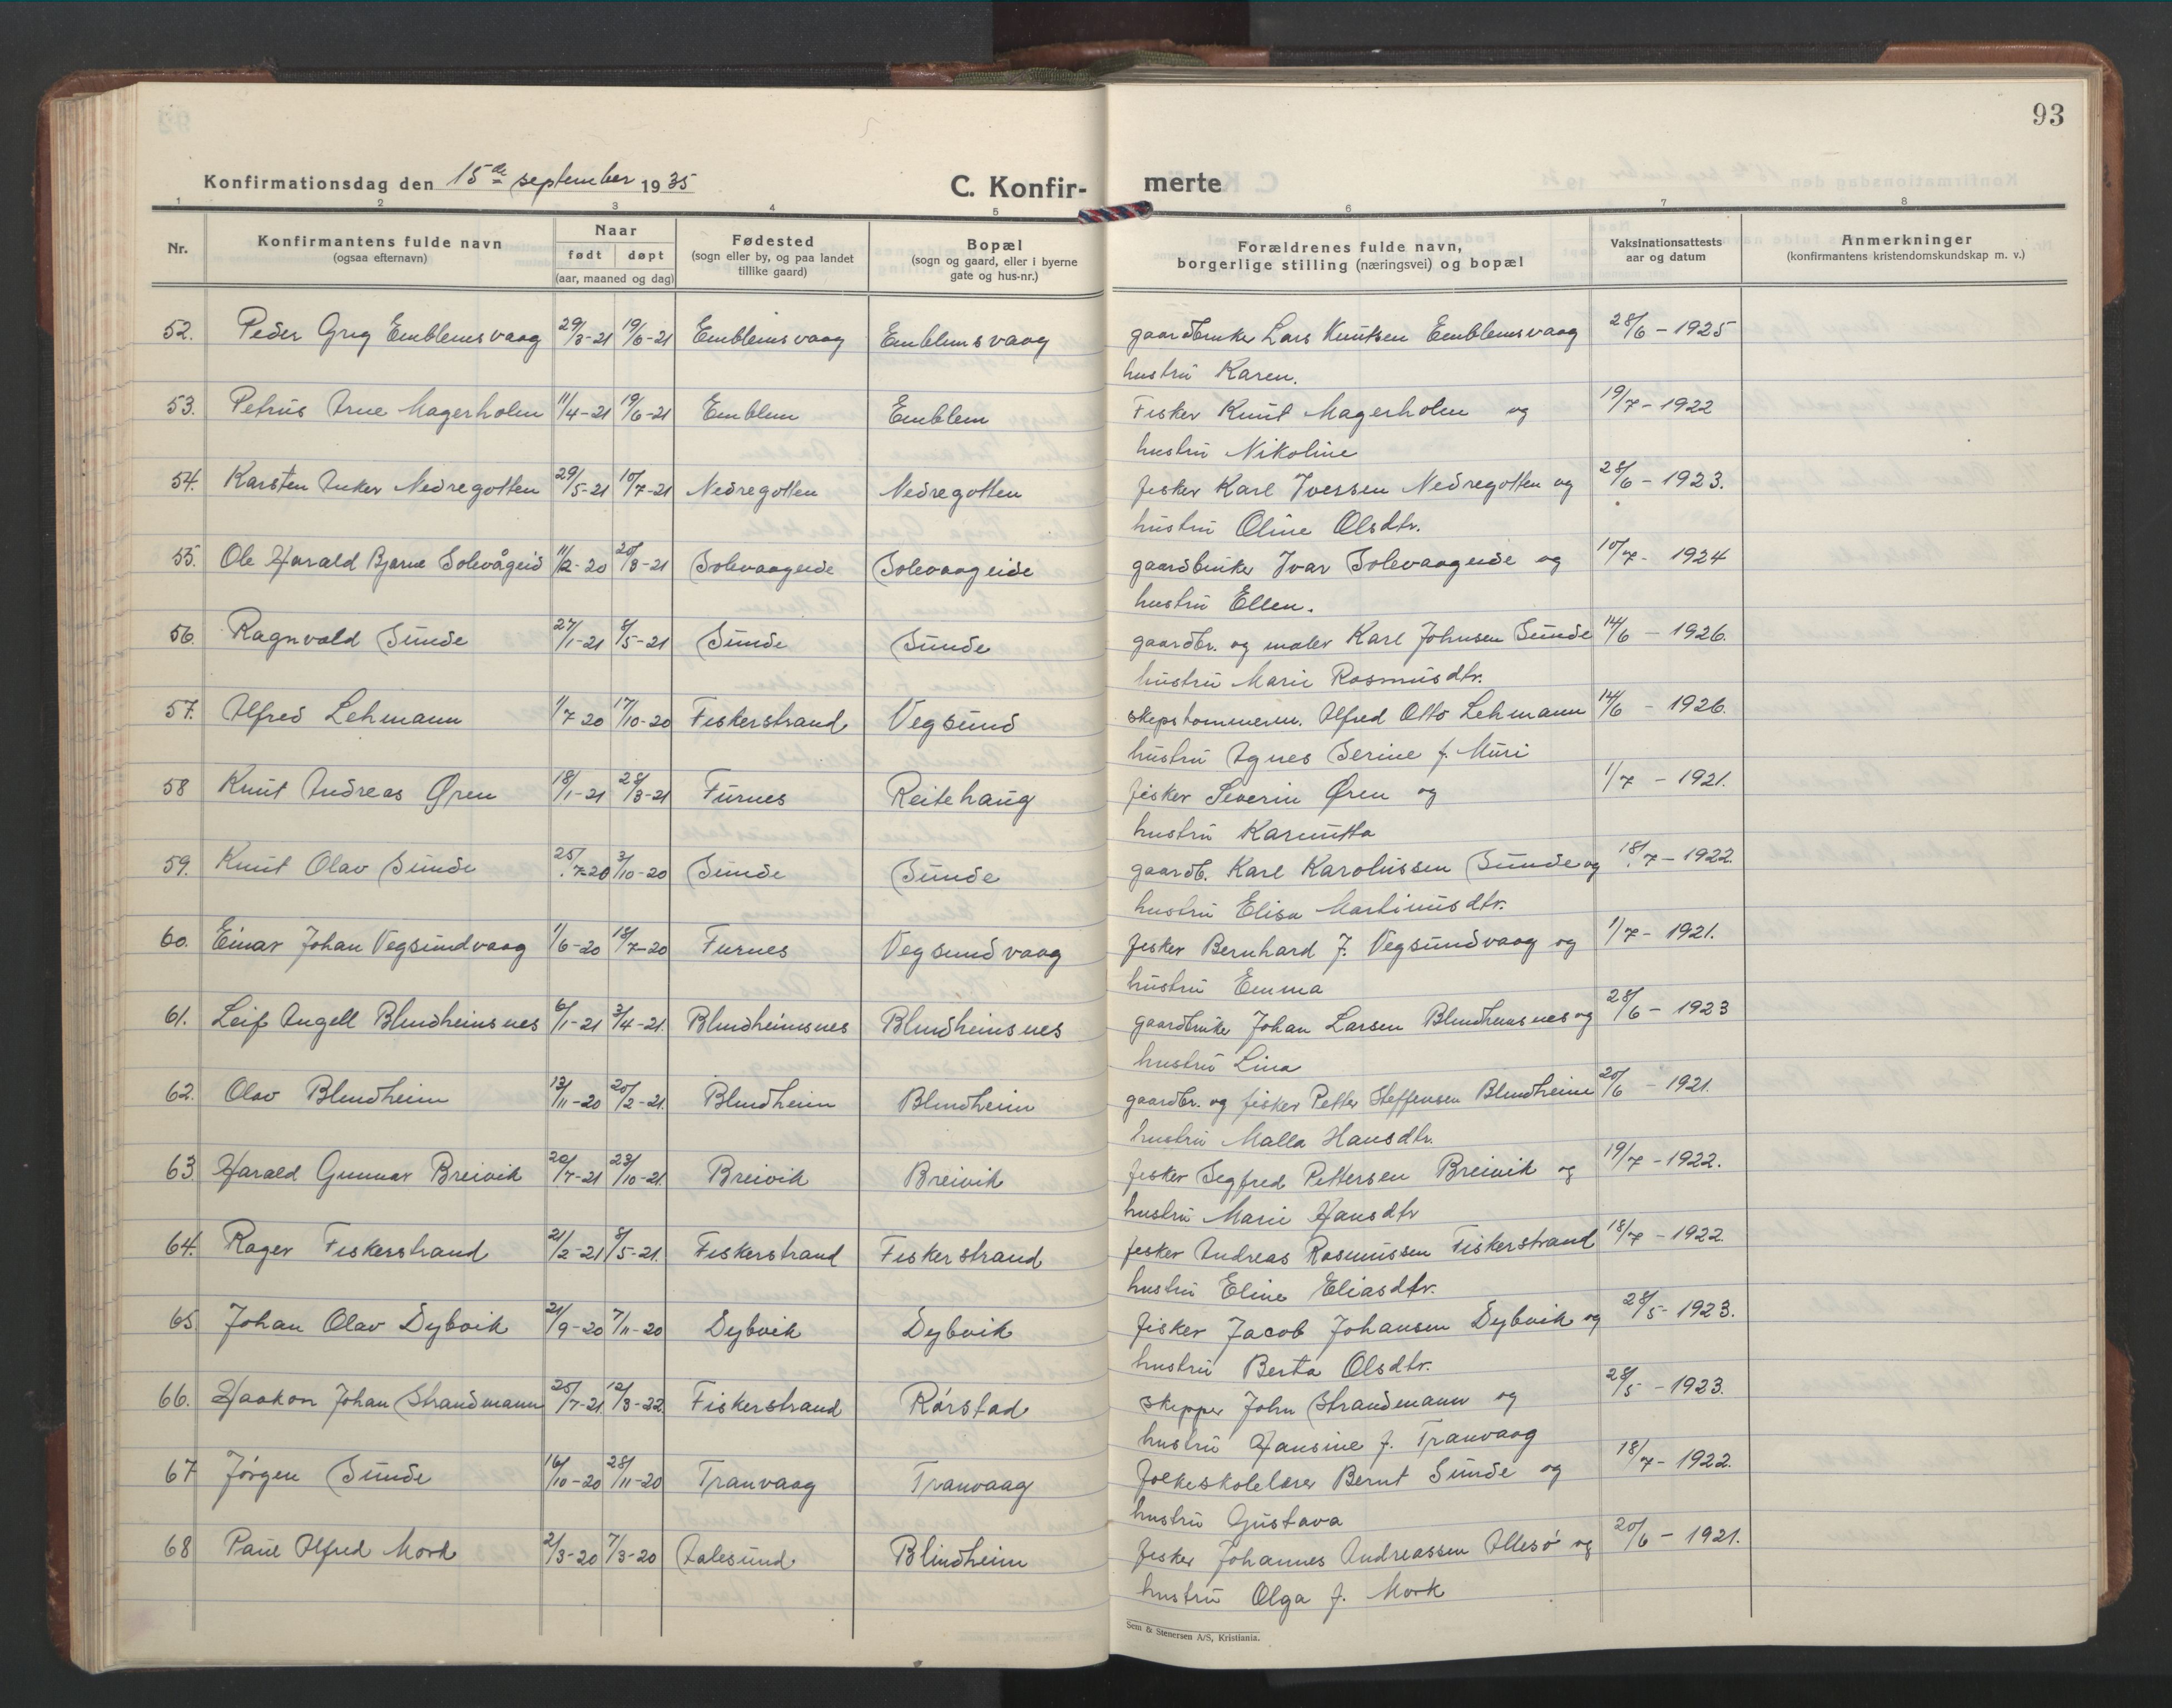 93
Konfirmationsdag den 15de september 1935
C. Konfir- merte
1 2 3 4 5 6 7 8
Nr.
Konfirmantens fulde navn
(ogsaa efternavn)
Naar
født døpt
(aar, maaned og dag)
Fødested
(sogn eller by, og paa landet
tillike gaard)
Bopæl
(sogn og gaard, eller i byerne
gate og hus-nr.)
Forældrenes fulde navn,
borgerlige stilling (næringsvei) og bopæl
Vaksinationsattests
aar og datum
Anmerkninger
(konfirmantens kristendomskundskap m. v.)
52. Peder Grig Emblemsvaag 29/3-21 19/6-21 Emblemsvaag Emblemsvaag gaardbruker Lars Knutsen Emblemsvaag 28/6 - 1925
hustru Karen.
53. Petrus Arne Magerholm 11/4-21 19/6-21 Emblem Emblem Fisker Knut Magerholm og 19/7 - 1922
hustru Nikoline
54. Karsten Anker Nedregotten 29/5-21 10/7-21 Nedregotten Nedregotten fisker Karl Iversen Nedregotten og 28/6 - 1923.
hustru Oline Olsdtr.
55. Ole Harald Bjarne Solevågeid 11/2-20 20/3-21 Solevaageide Solevaageide gaardbruker Ivar Solevaageide og 10/7 - 1924
hustru Ellen.
56. Ragnvald Sunde 27/1-21 8/5-21 Sunde Sunde gaardbr. og maler Karl Johnsen Sunde 14/6 - 1926.
hustru Marie Rasmusdtr.
57. Alfred Lehmann 1/7 20 17/10-20 Fiskerstrand Vegsund skipstømmerm. Alfred Otto Lehmann 14/6 - 1926.
hustru Agnes Serine f. Muri
58 Knut Andreas Øren 18/1-21 28/3-21 Furnes Reitehaug fisker Severin Øren og 1/7 - 1921.
hustru Karnutta
59. Knut Olav Sunde 25/7-20 3/10-20 Sunde Sunde gaardb. Karl Karolussen Sunde og 18/7 - 1922.
hustru Elisa Martinusdtr.
60. Einar Johan Vegsundvaag 1/6-20 18/7-20 Furnes Vegsundvaag fisker Bernhard J. Vegsundvaag og 1/7 - 1921.
hustru Emma
61. Leif Angell Blindheimsnes 6/1-21 3/4-21. Blindheimsnes Blindheimsnes gaardbruker Johan Larsen Blindheimsnes og 28/6 - 1923
hustru Lina
62. Olav Blindheim 13/11-20 20/2-21. Blindheim Blindheim gaardbr. og fisker Petter Steffensen Blindheim 20/6 - 1921.
hustru Malla Hansdtr.
63 Harald Gunnar Breivik 20/7-21 23/10-21. Breivik Breivik fisker Segfred Pettersen Breivik og 19/7 - 1922.
hustru Marie Hansdtr
64. Roger Fiskerstrand 21/2-21 8/5-21. Fiskerstrand Fiskerstrand fisker Andreas Rasmussen Fiskerstrand 18/7 - 1922.
hustru Eline Eliasdtr.
65. Johan Olav Dybvik 21/9-20 7/11-20 Dybvik Dybvik fisker Jacob Johansen Dybvik og 28/5 - 1923.
hustru Berta Olsdtr.
66. Haakon Johan Strandmann 25/7-21. 12/3-22. Fiskerstrand Rørstad skipper John Strandmann og 28/5 - 1923.
hustru Hansine f. Tranvaag
67 Jørgen Sunde 16/10-20 28/11-20 Tranvaag Tranvaag folkeskolelærer Bernt Sunde og 18/7 - 1922.
hustru Gustava
68 Paul Alfred Mork 2/3-20 7/3-20 Aalesund Blindheim fisker Johannes Andreassen Allesø og 20/6 - 1921.
hustru Olga f. Mork
Sem & Stenersen A/S, Kristiania.